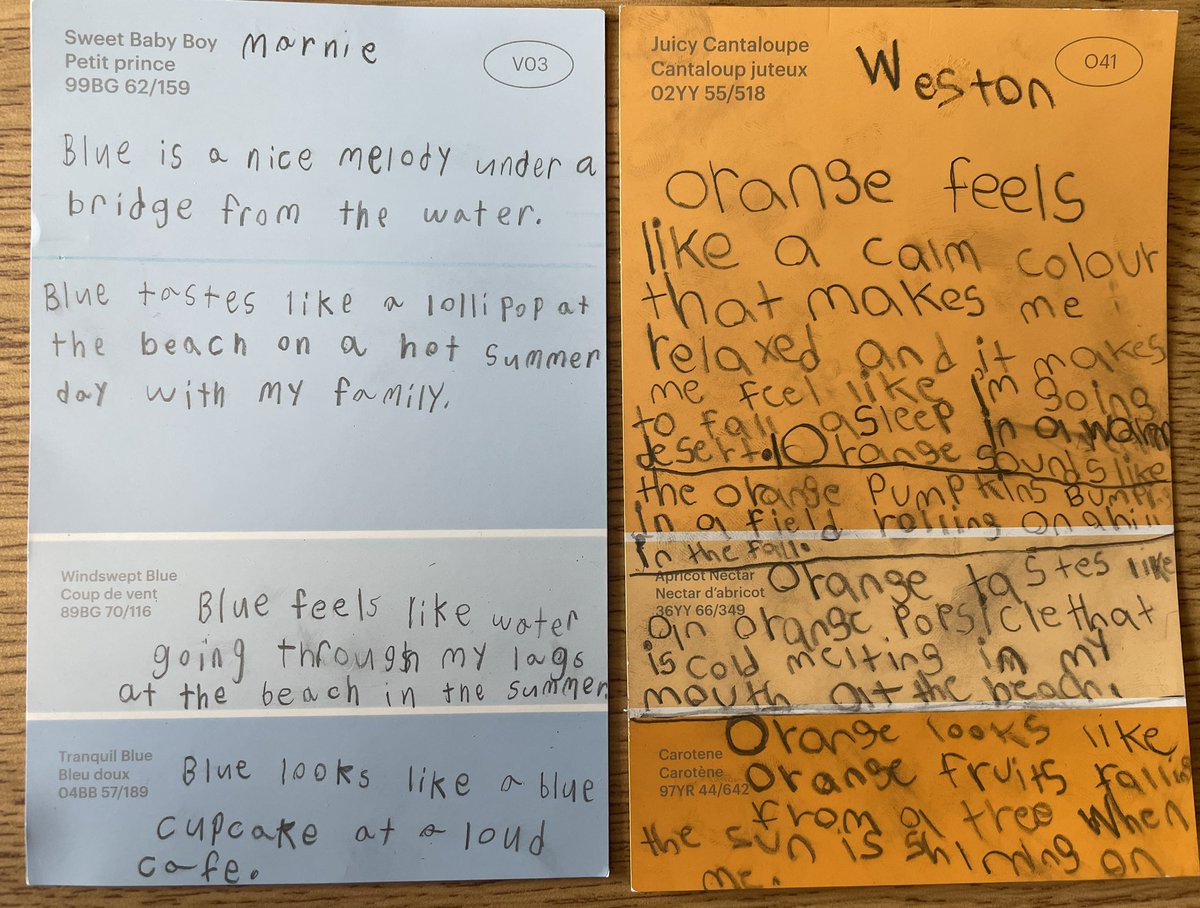 Sweet Baby Boy
Petit prince
99BG 62/159
Marnie
V03
Blue is a nice melody under a
bridge from the water.
Blue tastes like a lollipop at
the beach on a hot summer
day with my family.
Windswept Blue
Coup de vent
89BG 70/116
Blue feels like water
going through my lags
at the beach in the summer
Tranquil Blue
Bleu doux
04BB 57/189
Blue looks like a blue
cupcake at a loud
cafe.
Juicy Cantaloupe
Cantaloup juteux
02YY 55/518
Weston
O41
Orange feels
like a calm colour
that makes me
relaxed and it makes
me feel like I'm going
to fall asleep in a warm
desert. Orange sounds like
the orange pumpkins
in a field rolling on a hill
in the fall.
Apricot Nectar
Nectar d'abricot
36YY 66/349
Orange tastes like
an orange popsicle that
is cold melting in my
mouth at the beach.
Carotene
Carotène
97YR 44/642
Orange looks like
orange fruits falling
from a tree when
the sun is shining on
me.